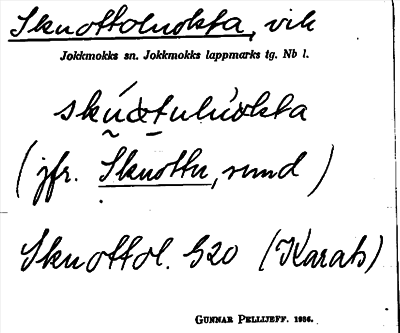 Skuottoluokta, vik
Jokkmokks sn. Jokkmokks lappmarks tg. Nb l.
skúo̯tuluo̯kta
(jfr. Skuottu, sund)
Skuottol. G20 (Karats)
GUNNAR PELLIJEFF. 1956.